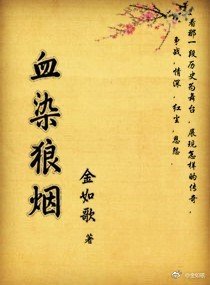 看那一段历史的舞台，展现怎样的传奇，
争战．情深．红尘．恩怨．
血染狼烟
金如歌 著
@金如歌